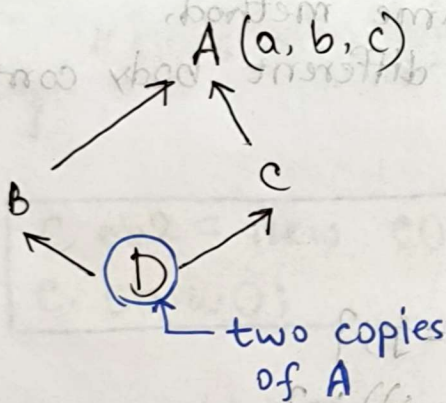 A (a, b, c)
B
C
D
two copies
of A